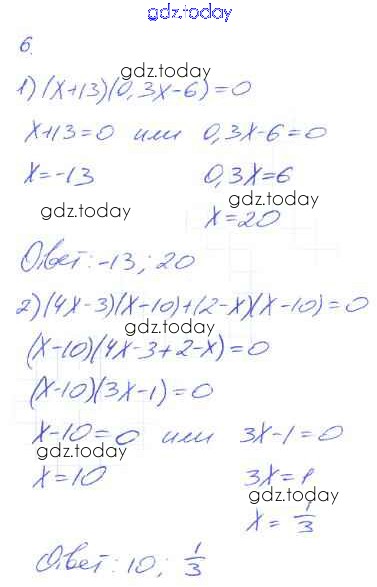 gdz.today
6.
gdz.today
1) (x+13)(0,3x-6)=0
x+13=0 или 0,3x-6=0
x=-13 0,3x=6
gdz.today gdz.today
x=20
Ответ: -13; 20
2) (4x-3)(x-10)+(2-x)(x-10)=0
gdz.today
(x-10)(4x-3+2-x)=0
(x-10)(3x-1)=0
x-10=0 или 3x-1=0
gdz.today
x=10 3x=1
gdz.today
x=1/3
Ответ: 10; 1/3